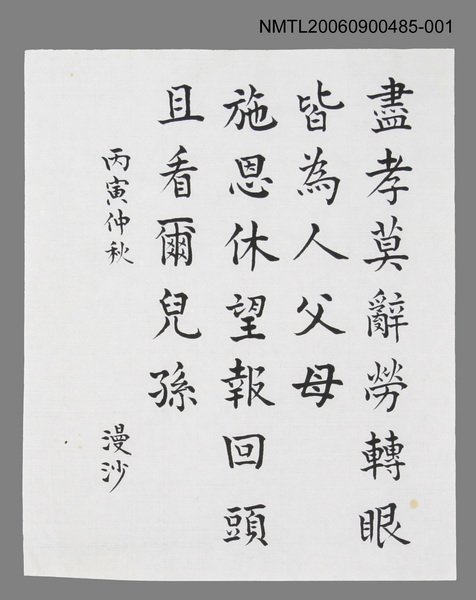 NMTL20060900485-001
盡孝莫辭勞轉眼
皆為人父母
施恩休望報回頭
且看爾兒孫
丙寅仲秋
漫沙